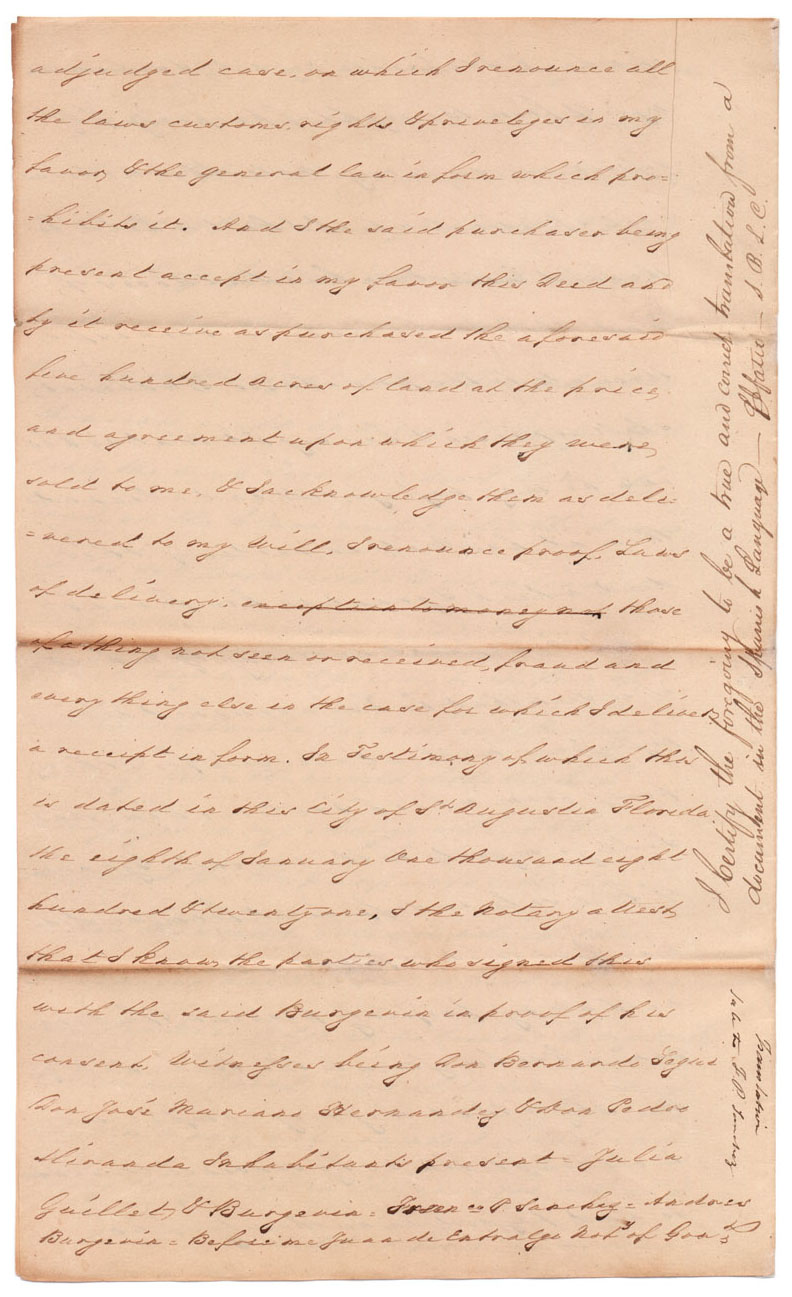 adjudged case, on which I renounce all
the laws customs rights & priveleges in my
favor, & the general law in form which pro=
=hibits it. And I the said purchaser being
present accept in my favor this Deed and
by it receive as purchased the aforesaid
five hundred acres of land at the price,
and agreement upon which they were,
sold to me, & I acknowledge them as deli=
=vered to my will, I renounce proof, Laws
of delivery, exception to money not those
of a thing not seen or received, fraud and
every thing else in the case for which I deliver
a receipt in form. In Testimony of which this
is dated in this City of St Augustin Florida
the eighth of January One thousand eight
hundred & twenty one, I the Notary attest,
that I know, the parties who signed this
with the said Burgevin in proof of his
consent, Witnesses being Don Bernardo Segui
Don José Mariano Hernandez & Don Pedro
Miranda Inhabitants present = Julia
Guillet, & Burgevin = & Sanchez = Andres
Burgevin = Before me Juan de Entralgo Noty of Govt
I Certify the foregoing to be a true and correct translation from a
document in the Spanish Language — — S. B. L. C.
Translation